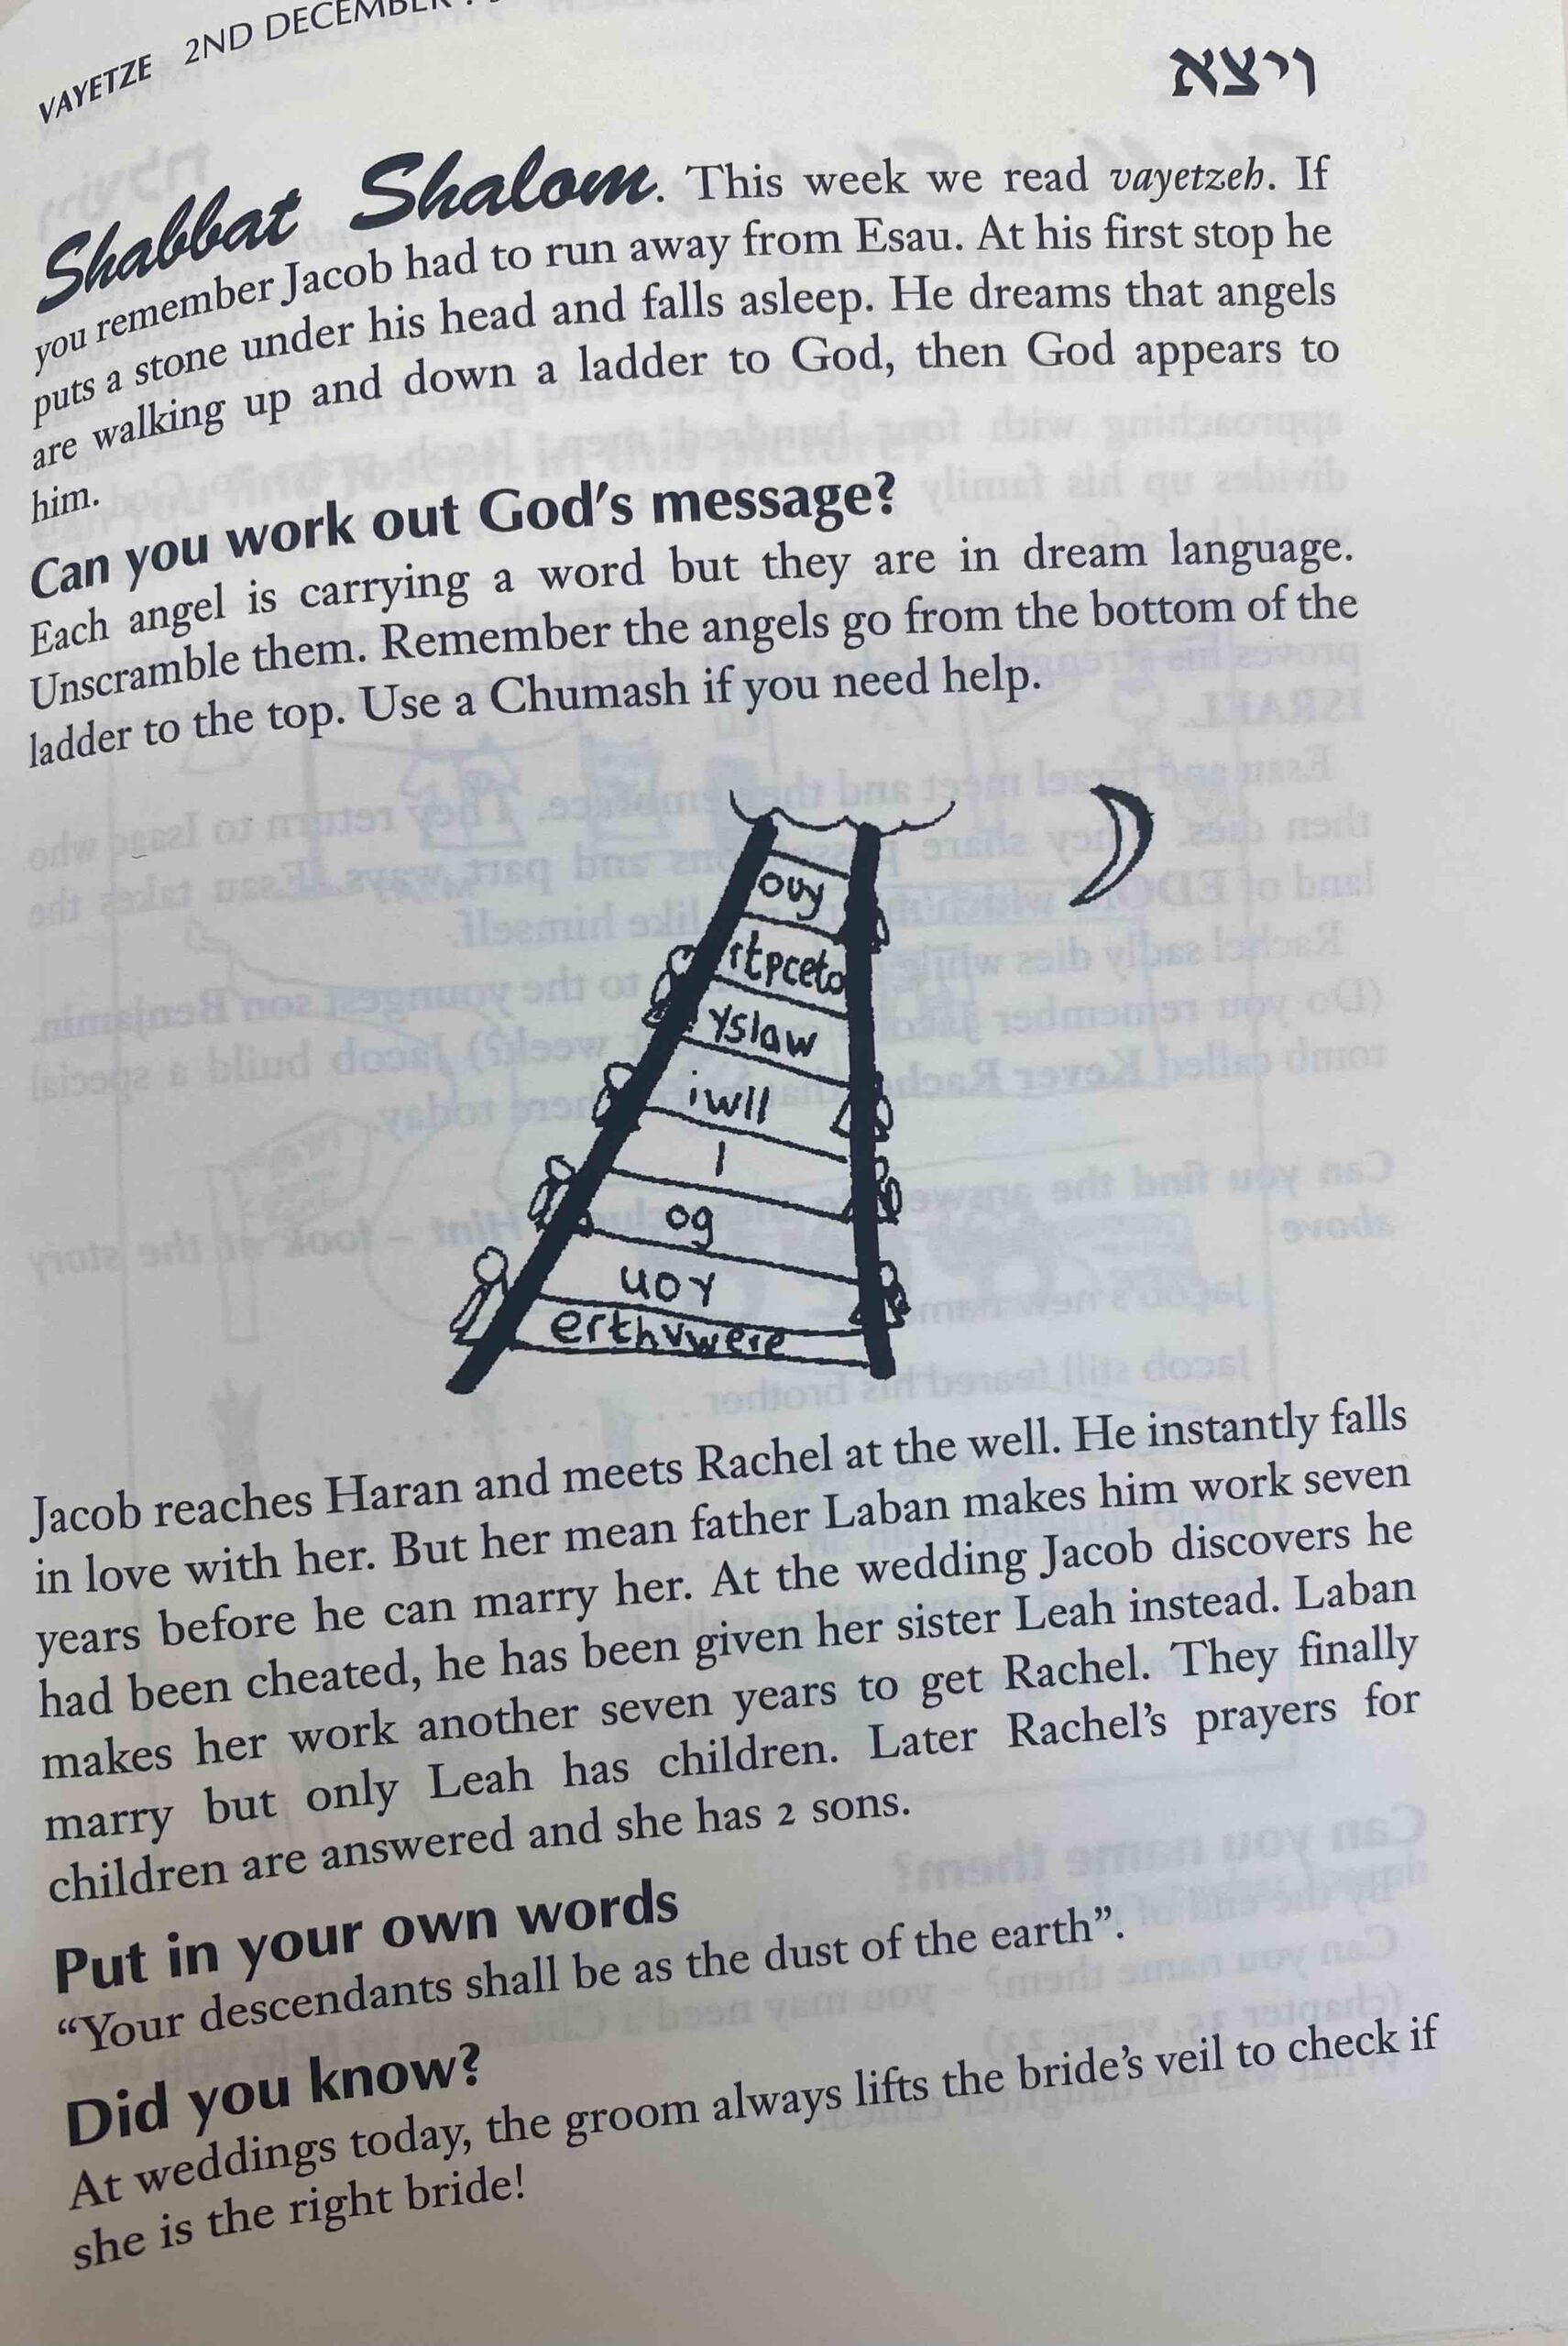 VAYETZE 2ND DECEMBER
ויצא
Shabbat Shalom. This week we read vayetzeh. If
you remember Jacob had to run away from Esau. At his first stop he
puts a stone under his head and falls asleep. He dreams that angels
are walking up and down a ladder to God, then God appears to
him.
Can you work out God's message?
Each angel is carrying a word but they are in dream language.
Unscramble them. Remember the angels go from the bottom of the
ladder to the top. Use a Chumash if you need help.
ouy
rtpceto
yslaw
iwll
I
og
uoy
erthvwere
Jacob reaches Haran and meets Rachel at the well. He instantly falls
in love with her. But her mean father Laban makes him work seven
years before he can marry her. At the wedding Jacob discovers he
had been cheated, he has been given her sister Leah instead. Laban
makes her work another seven years to get Rachel. They finally
marry but only Leah has children. Later Rachel's prayers for
children are answered and she has 2 sons.
Put in your own words
“Your descendants shall be as the dust of the earth”.
Did you know?
At weddings today, the groom always lifts the bride's veil to check if
she is the right bride!